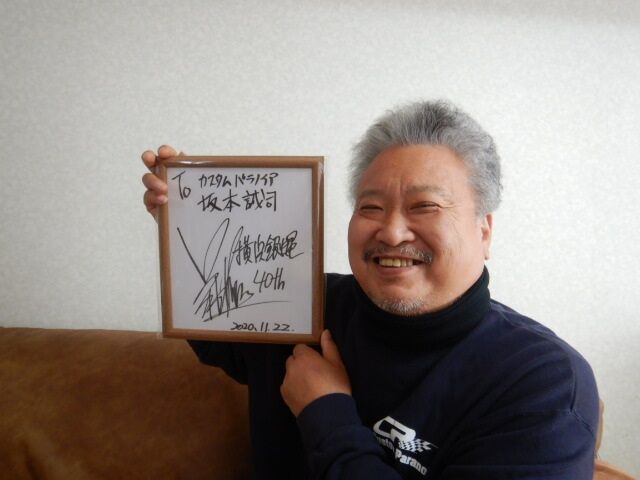 To カスタムパラノイア
坂本誠司
横浜銀蝿
40th
2020.11.22.
CR
Parano